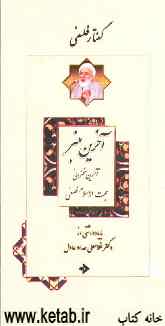 گفتار فلسفی
آخرین منبر
آخرین سخنرانی
حجت الاسلام فلسفی
با یادداشتی از
دکتر غلامعلی حداد عادل
خانه کتاب
www.ketab.ir